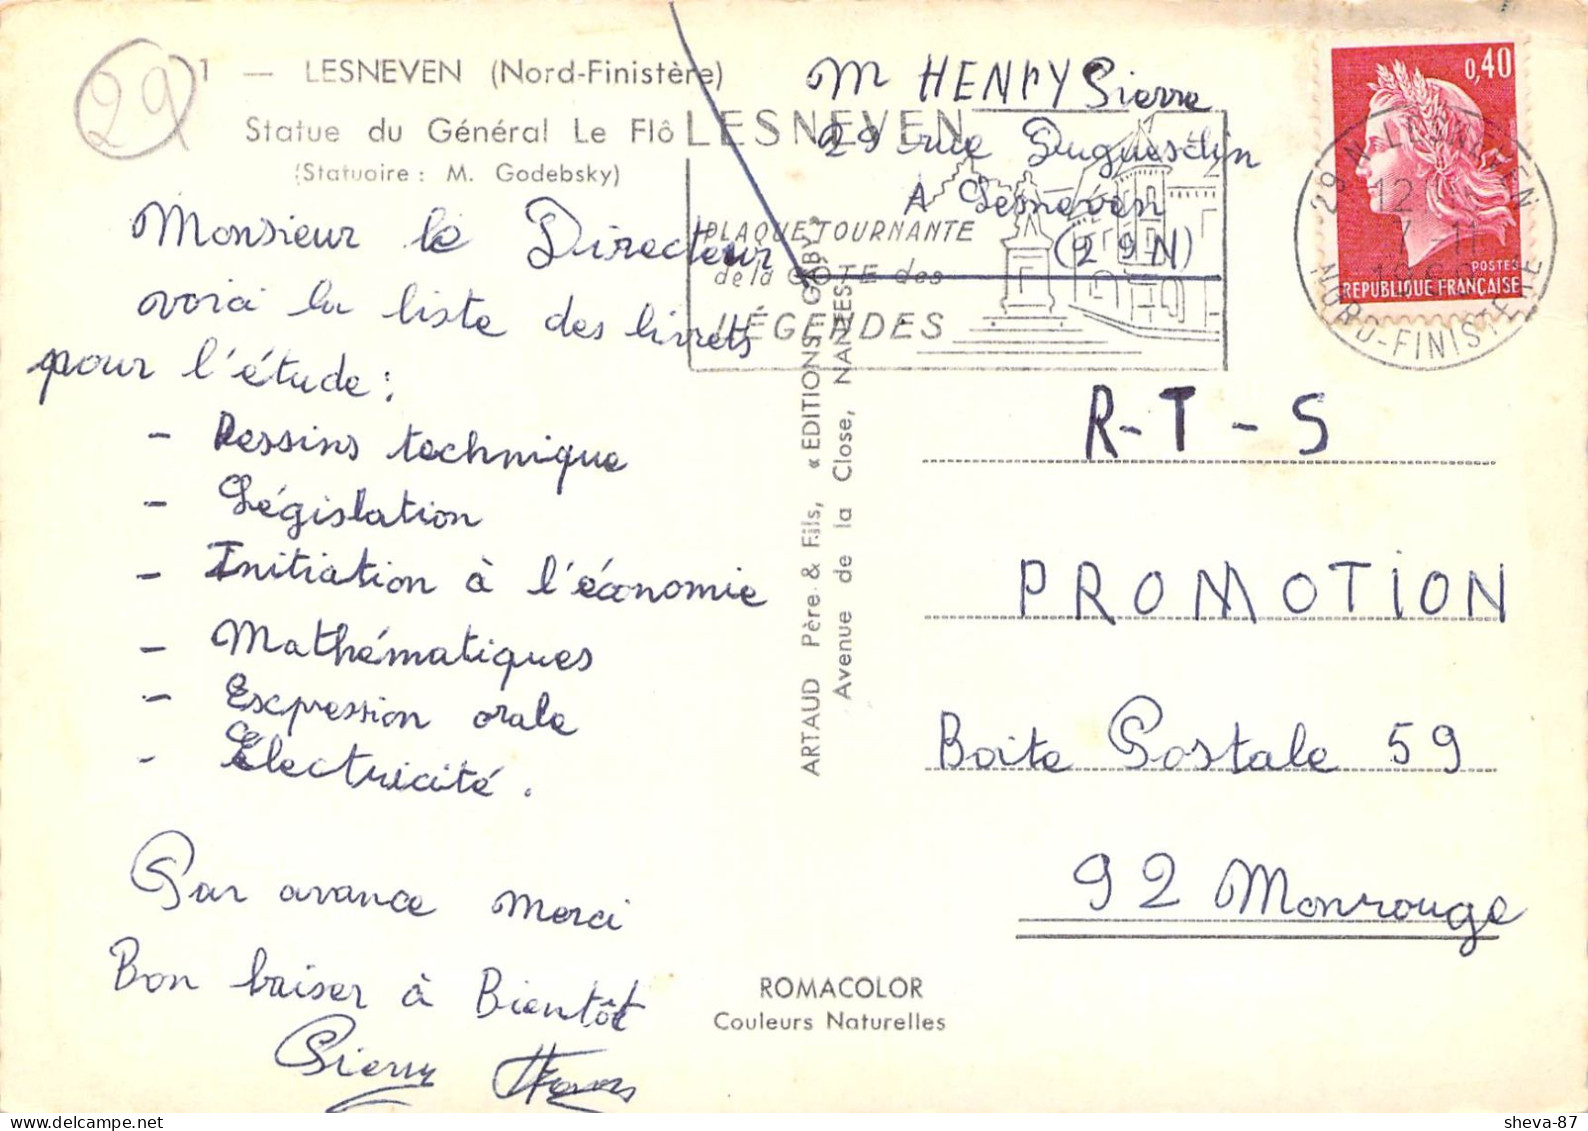 29
1 — LESNEVEN (Nord-Finistère)
Statue du Général Le Flô
(Statuaire : M. Godebsky)
Monsieur le Directeur
voici la liste des livrets
pour l'étude :
- Dessins technique
- Législation
- Initiation à l'économie
- Mathématiques
- Expression orale
- Electricité.
Par avance merci
Bon baiser à Bientôt
Pierre Henry
M HENRY Pierre
29 rue Duguesclin
A Lesneven
(29 N)
LESNEVEN
PLAQUE TOURNANTE
de la CÔTE des
LÉGENDES
0,40
POSTES
REPUBLIQUE FRANÇAISE
29 N LESNEVEN
12
7-11
NORD-FINISTERE
ARTAUD Père & Fils, « EDITIONS GABY »
Avenue de la Close, NANTES
R-T-S
PROMOTION
Boite Postale 59
92 Monrouge
ROMACOLOR
Couleurs Naturelles
sheva-87
myelure.delcampe.net